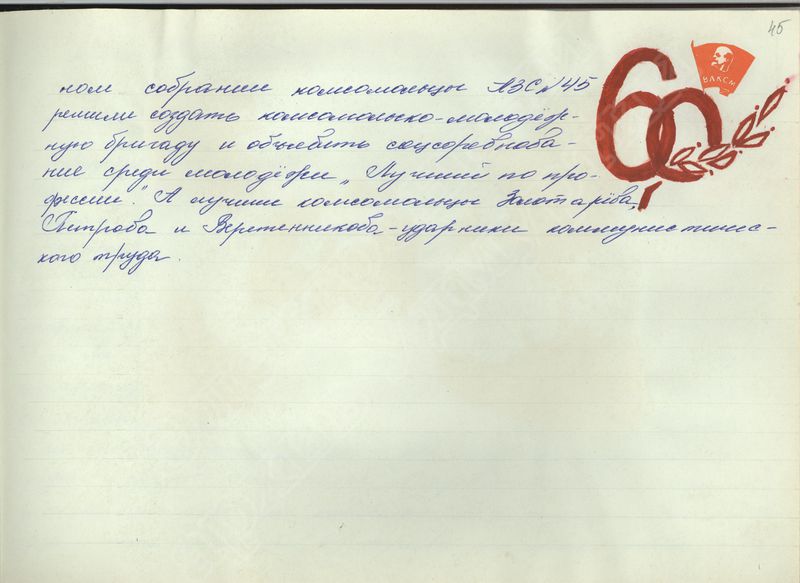 45
ВЛКСМ
60
ном собрании комсомольцы АЗС №45
решили создать комсомольско-молодёж-
ную бригаду и объявить соцсоревнова-
ние среди молодёжи „Лучший по про-
фессии". А лучшие комсомольцы Золотарёва,
Петрова и Веретенникова-ударники коммунистичес-
кого труда.